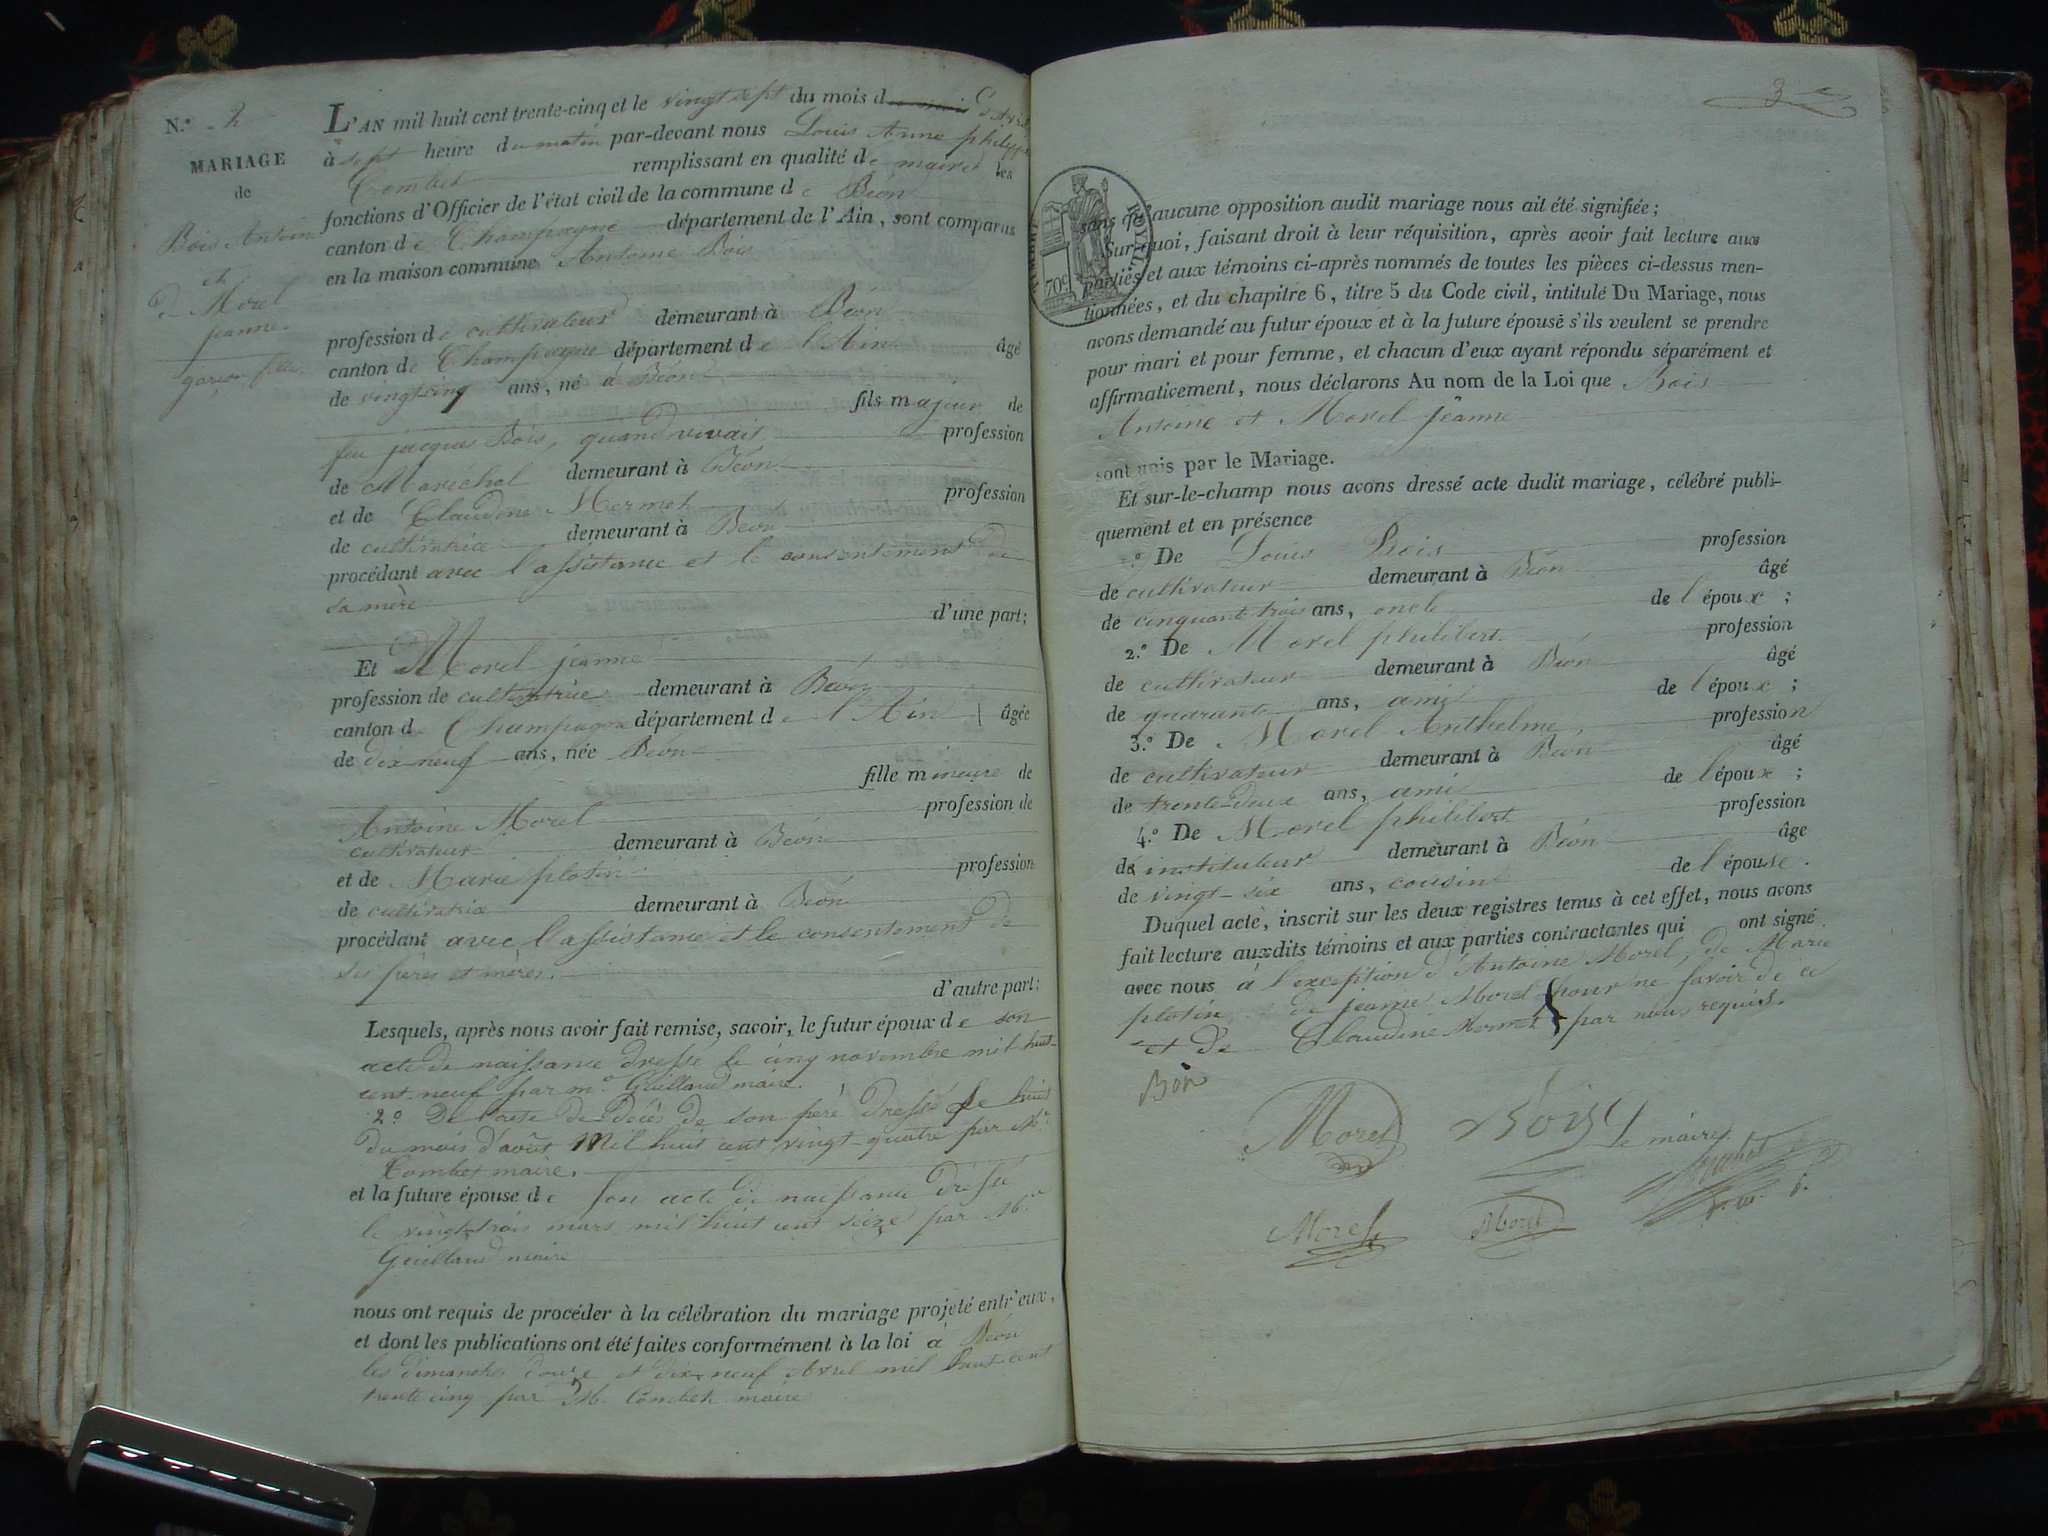 N.º 2
MARIAGE
de
Bois Antoine
et
de Morel
jeanne.
garçon fille.
L'AN mil huit cent trente-cinq et le vingt sept du mois d'avril
à sept heure du matin par-devant nous Louis Anne philippe
Combet remplissant en qualité de maire les
fonctions d'Officier de l'état civil de la commune de Béon
canton de Champagne département de l'Ain, sont comparus
en la maison commune Antoine Bois
profession de cultivateur demeurant à Béon
canton de Champagne département de l'Ain âgé
de vingt cinq ans, né à Béon
fils majeur de
feu jacques Bois, quand vivait profession
de Maréchal demeurant à Béon
et de Claudine Mermet profession
de cultivatrice demeurant à Béon
procédant avec l'assistance et le consentement de
sa mère
d'une part;
Et Morel jeanne
profession de cultivatrice demeurant à Béon
canton de Champagne département de l'Ain âgée
de dix neuf ans, née Béon
fille mineure de
Antoine Morel profession de
cultivateur demeurant à Béon
et de Marie plotin profession
de cultivatrice demeurant à Béon
procédant avec l'assistance et le consentement de
ses pères et mères.
d'autre part;
Lesquels, après nous avoir fait remise, savoir, le futur époux de son
acte de naissance dressé le cinq novembre mil huit
cent neuf par mº Guilland maire.
2º De l'acte de Décès de son père dressé le huit
du mois d'août Mil huit cent vingt-quatre par Mr
Combet maire.
et la future épouse de son acte de naissance dressé
le vingt trois mars mil huit cent seize par Mr
Guilland maire
nous ont requis de procéder à la célébration du mariage projeté entr'eux,
et dont les publications ont été faites conformément à la loi à Béon
les dimanches douze et dix neuf Avril mil huit cent
trente cinq par M. Combet maire
3
TIMBRE ROYAL
70c
sans qu'aucune opposition audit mariage nous ait été signifiée;
Sur quoi, faisant droit à leur réquisition, après avoir fait lecture aux
parties et aux témoins ci-après nommés de toutes les pièces ci-dessus men-
tionnées, et du chapitre 6, titre 5 du Code civil, intitulé Du Mariage, nous
avons demandé au futur époux et à la future épouse s'ils veulent se prendre
pour mari et pour femme, et chacun d'eux ayant répondu séparément et
affirmativement, nous déclarons Au nom de la Loi que Bois
Antoine et Morel jeanne
sont unis par le Mariage.
Et sur-le-champ nous avons dressé acte dudit mariage, célébré publi-
quement et en présence
1.º De Louis Bois profession
de cultivateur demeurant à Béon âgé
de cinquante trois ans, oncle de l'époux;
2.º De Morel philibert profession
de cultivateur demeurant à Béon âgé
de quarante ans, ami de l'époux;
3.º De Morel Anthelme, profession
de cultivateur demeurant à Béon âgé
de trente-deux ans, ami de l'époux;
4.º De Morel philibert profession
de instituteur demeurant à Béon âge
de vingt-six ans, cousin de l'épouse.
Duquel acte, inscrit sur les deux registres tenus à cet effet, nous avons
fait lecture auxdits témoins et aux parties contractantes qui ont signé
avec nous à l'exception d'Antoine Morel, de Marie
plotin de jeanne Morel pour ne savoir de ce
et de Claudine Mermet par nous requis.
Bois
Morel Bois Le maire
Morel Morel